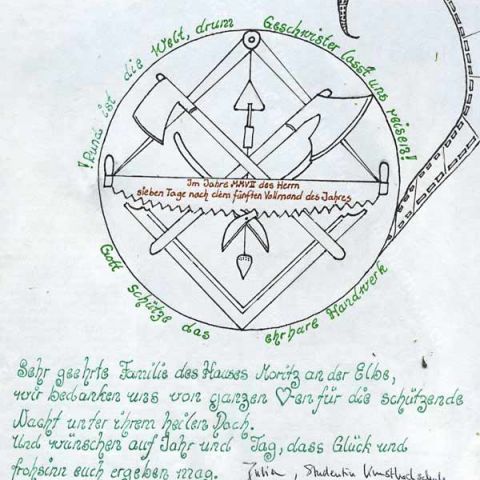 !Rund ist die Welt, drum Geschwister lasst uns reisen!
Im Jahre MMVII des Herrn
sieben Tage nach dem fünften Vollmond des Jahres
Gott schütze das ehrbare Handwerk
Sehr geehrte Familie des Hauses Moritz an der Elbe,
wir bedanken uns von ganzen ♡en für die schützende
Nacht unter ihrem heilen Dach.
Und wünschen auf Jahr und Tag, dass Glück und
frohsinn euch ergeben mag.
Julien, Studentin Kunsthochschule